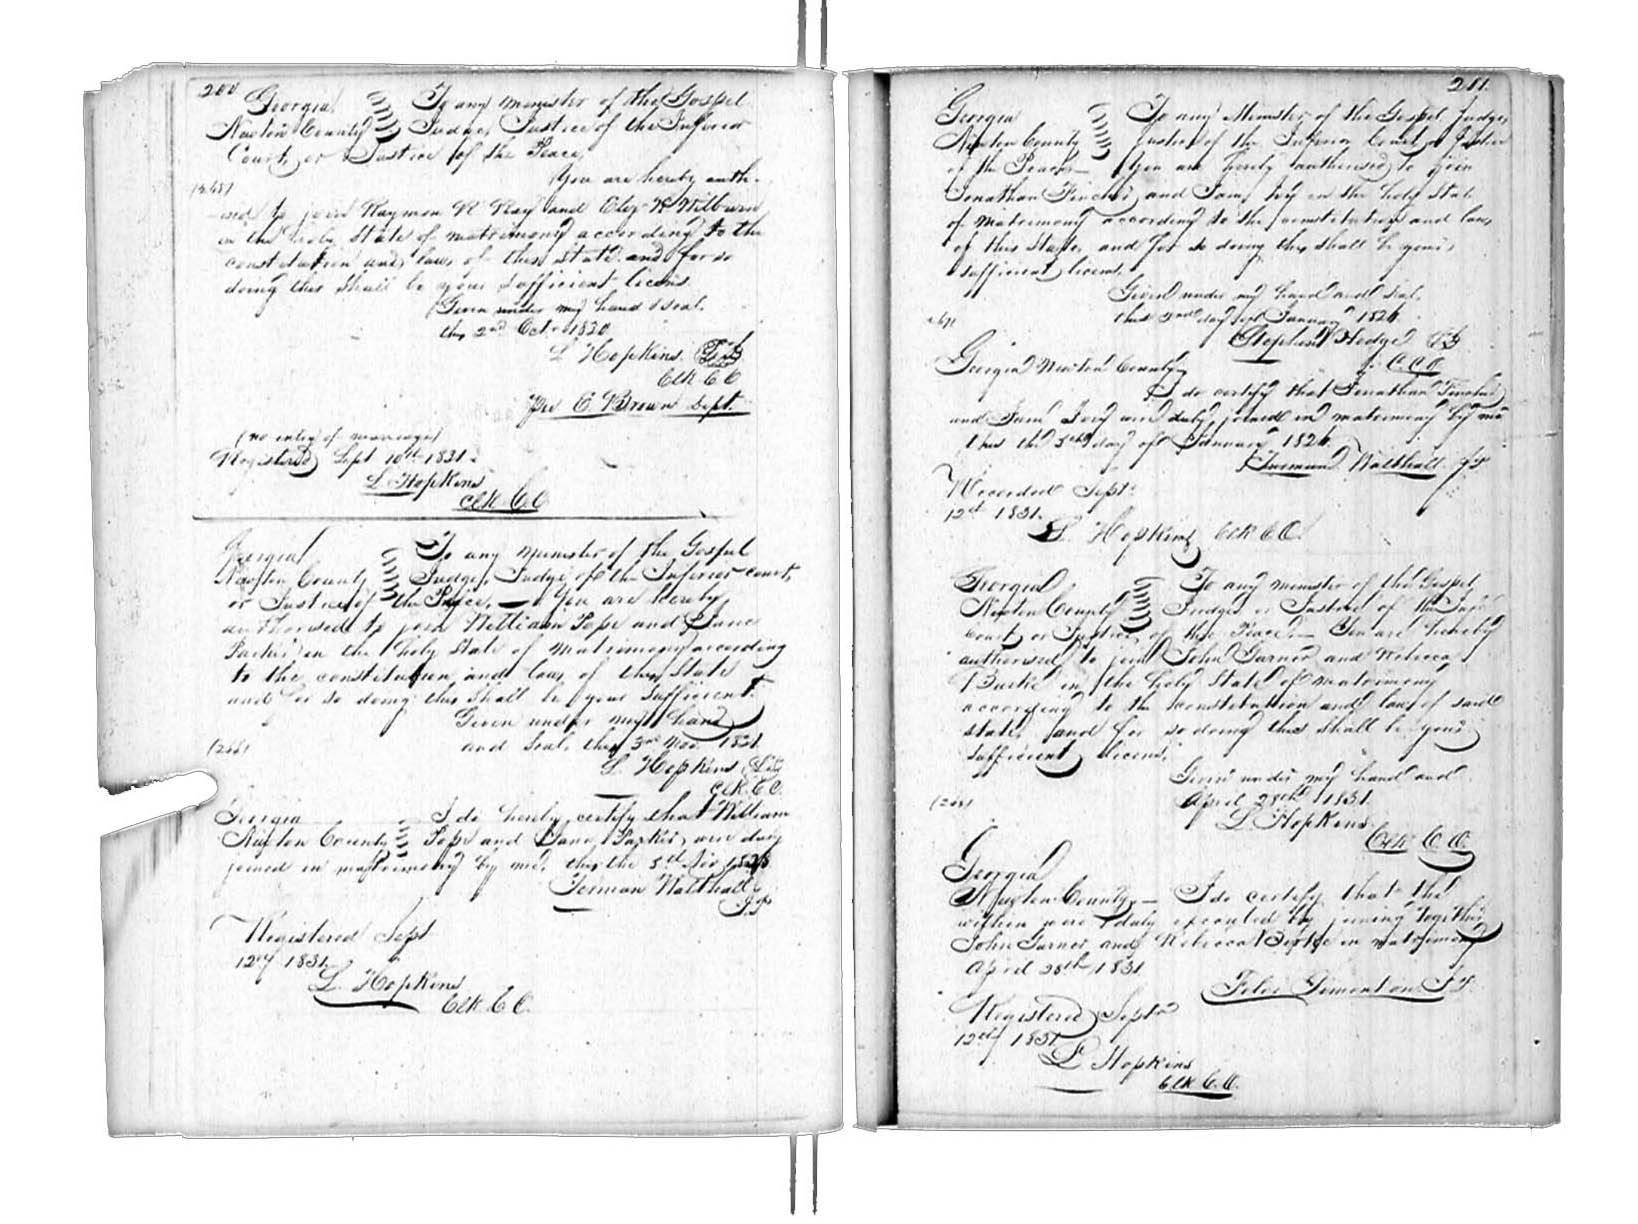 200
Georgia To any minister of the Gospel
Newton County Judge, Justice of the Inferior
Court, or Justice of the Peace,
You are hereby auth-
sed to join Raymon R Ray and Eliz W Wilburn
in the holy State of matrimony according to the
constitution and laws of this State and for so
doing this shall be your sufficient licens.
Given under my hand & seal.
this 2nd Oct. 1830
L Hopkins
Clk C C
C Brown Dept.
(no entry of marriage)
Registered Sept 10th 1831.
L Hopkins
Clk C C
Georgia To any minister of the Gospel
Newton County Judge, Judge of the Inferior court,
or Justice of the Peace, — You are hereby
authorised to join William Pope and Jane
Parkes in the holy State of Matrimony according
to the constitution and laws of this State
and for so doing this shall be your sufficient
Given under my hand
and seal this 3rd Nov. 1831
L. Hopkins
Clk. C. C.
Georgia I do hereby certify that William
Newton County Pope and Jane Parkes, were duly
joined in matrimony by me, this the 5th
Terman Walthall
J P
Registered Sept
12th 1831.
L. Hopkins
Clk C C.
201
Georgia To any Minister of the Gospel, Judge,
Newton County Justice of the Inferior Court or Justice
of the Peace — You are hereby authorised to join
Jonathan Fincher and Ivey in the holy State
of matrimony according to the constitution and laws
of this State, and for so doing this shall be your
sufficient licens.
Given under my hand and seal.
this day January 1826
Stephen Hodge
C.C.O
Georgia Newton County
I do certify that Jonathan Fincher
and Ivey were duly joined in matrimony by me
this the 5th day of January 1826
Walthall J P
Recorded Sept.
12th 1831.
L. Hopkins Clk C C.
Georgia To any minister of the Gospel,
Newton County Judge or Justice of the Infr
Court or Justice of the Peace. — You are hereby
authorised to join John Garner and Rebecca
Burke in the holy State of matrimony
according to the constitution and laws of said
state, and for so doing this shall be your
sufficient licens.
Given under my hand and
April 28th 1831.
L. Hopkins
Clk C. C.
Georgia
Newton County, — I do certify that the
within were duly executed by joining together
John Garner and Rebecca Burke in matrimony
April 28th 1831
J P.
Registered Sept
12th 1831
L Hopkins
Clk C. C.